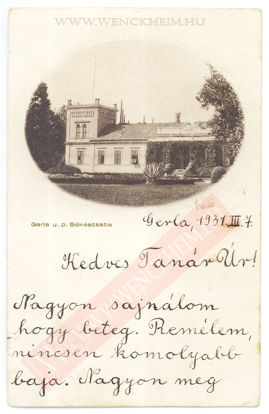 WWW.WENCKHEIM.HU
Gerla u. p. Békéscsaba
Gerla, 1931. III. 7.
Kedves Tanár Úr!
Nagyon sajnálom
hogy beteg. Remélem,
nincsen komolyabb
baja. Nagyon meg